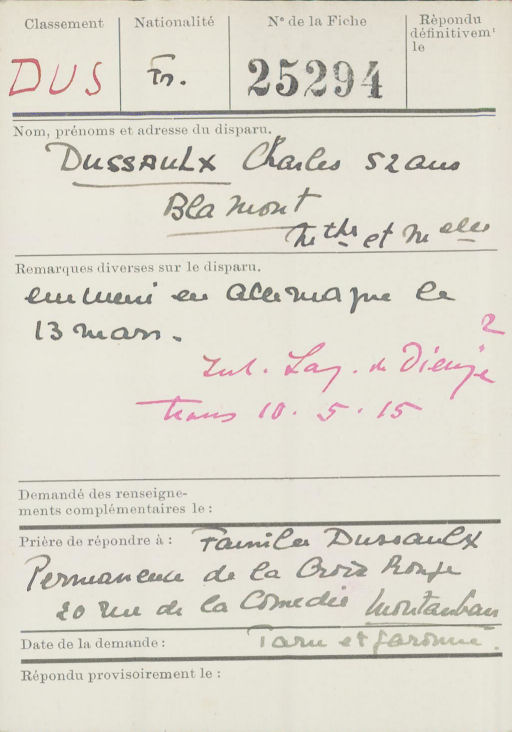 Classement
Nationalité
N° de la Fiche
Répondu définitivem^t le
DUS
Fr.
25294
Nom, prénoms et adresse du disparu.
DUSSAULX Charles 52 ans
Blamont
M^the et M^elle
Remarques diverses sur le disparu.
emmené en Allemagne le
13 mars.
2
Int. Lag. de
trans 10.5.15
Demandé des renseigne-
ments complémentaires le :
Prière de répondre à : Famille Dussaulx
Permanence de la Croix Rouge
20 rue de la Comédie Montauban
Date de la demande : Tarn et Garonne.
Répondu provisoirement le :